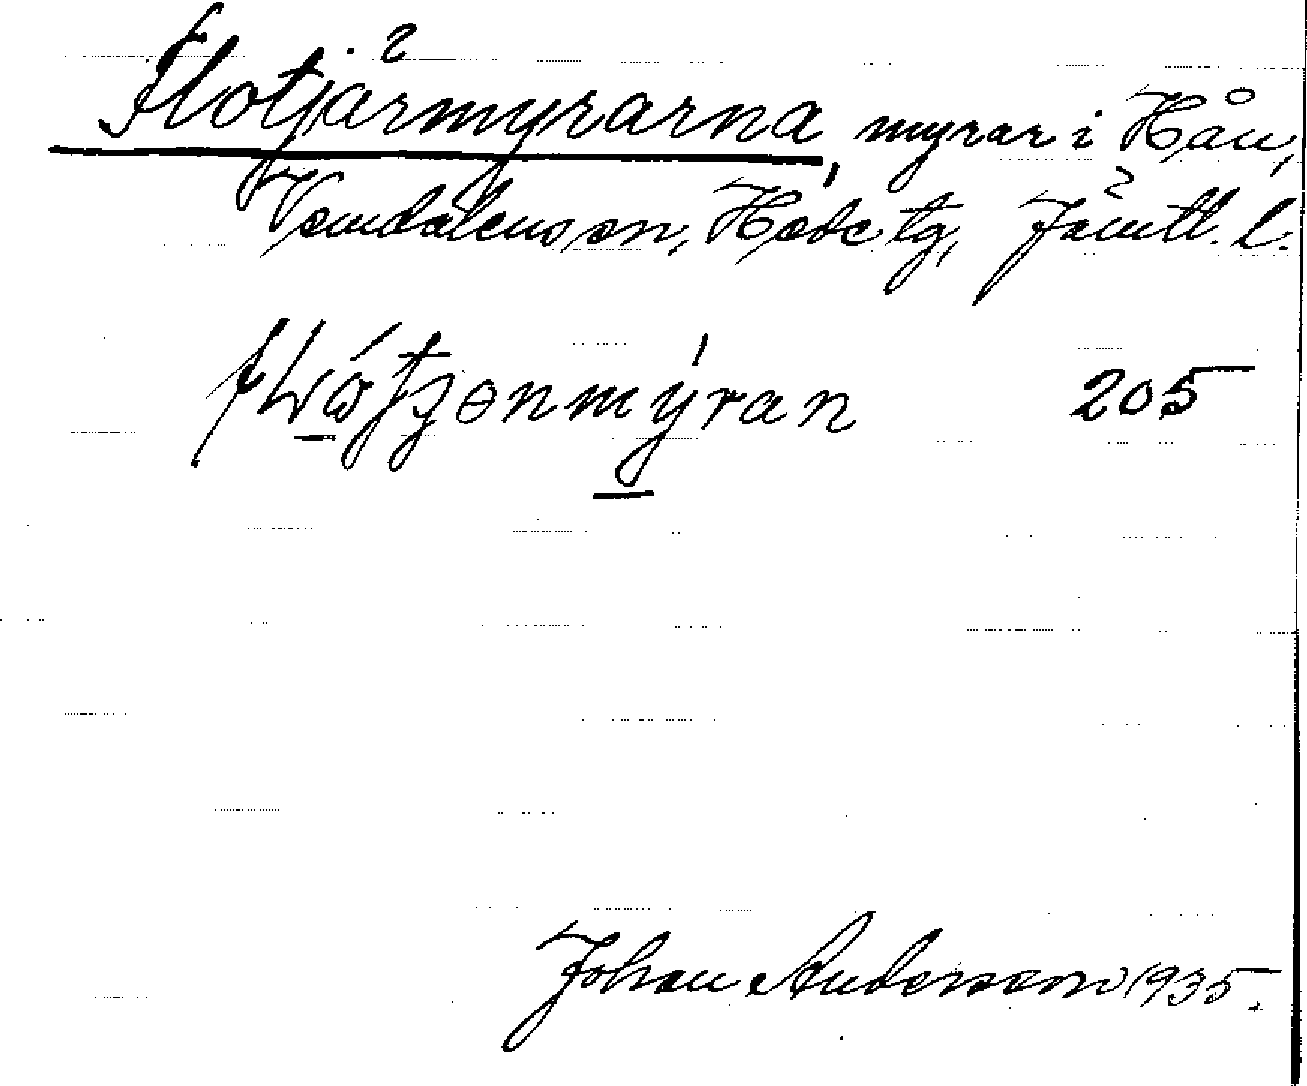 Flotjärmyrarna, myrar i Hån,
Vemdalens sn, Hede tg, Jämtl. l.
flåtʒenmýran 205
Johan Anderson 1935.